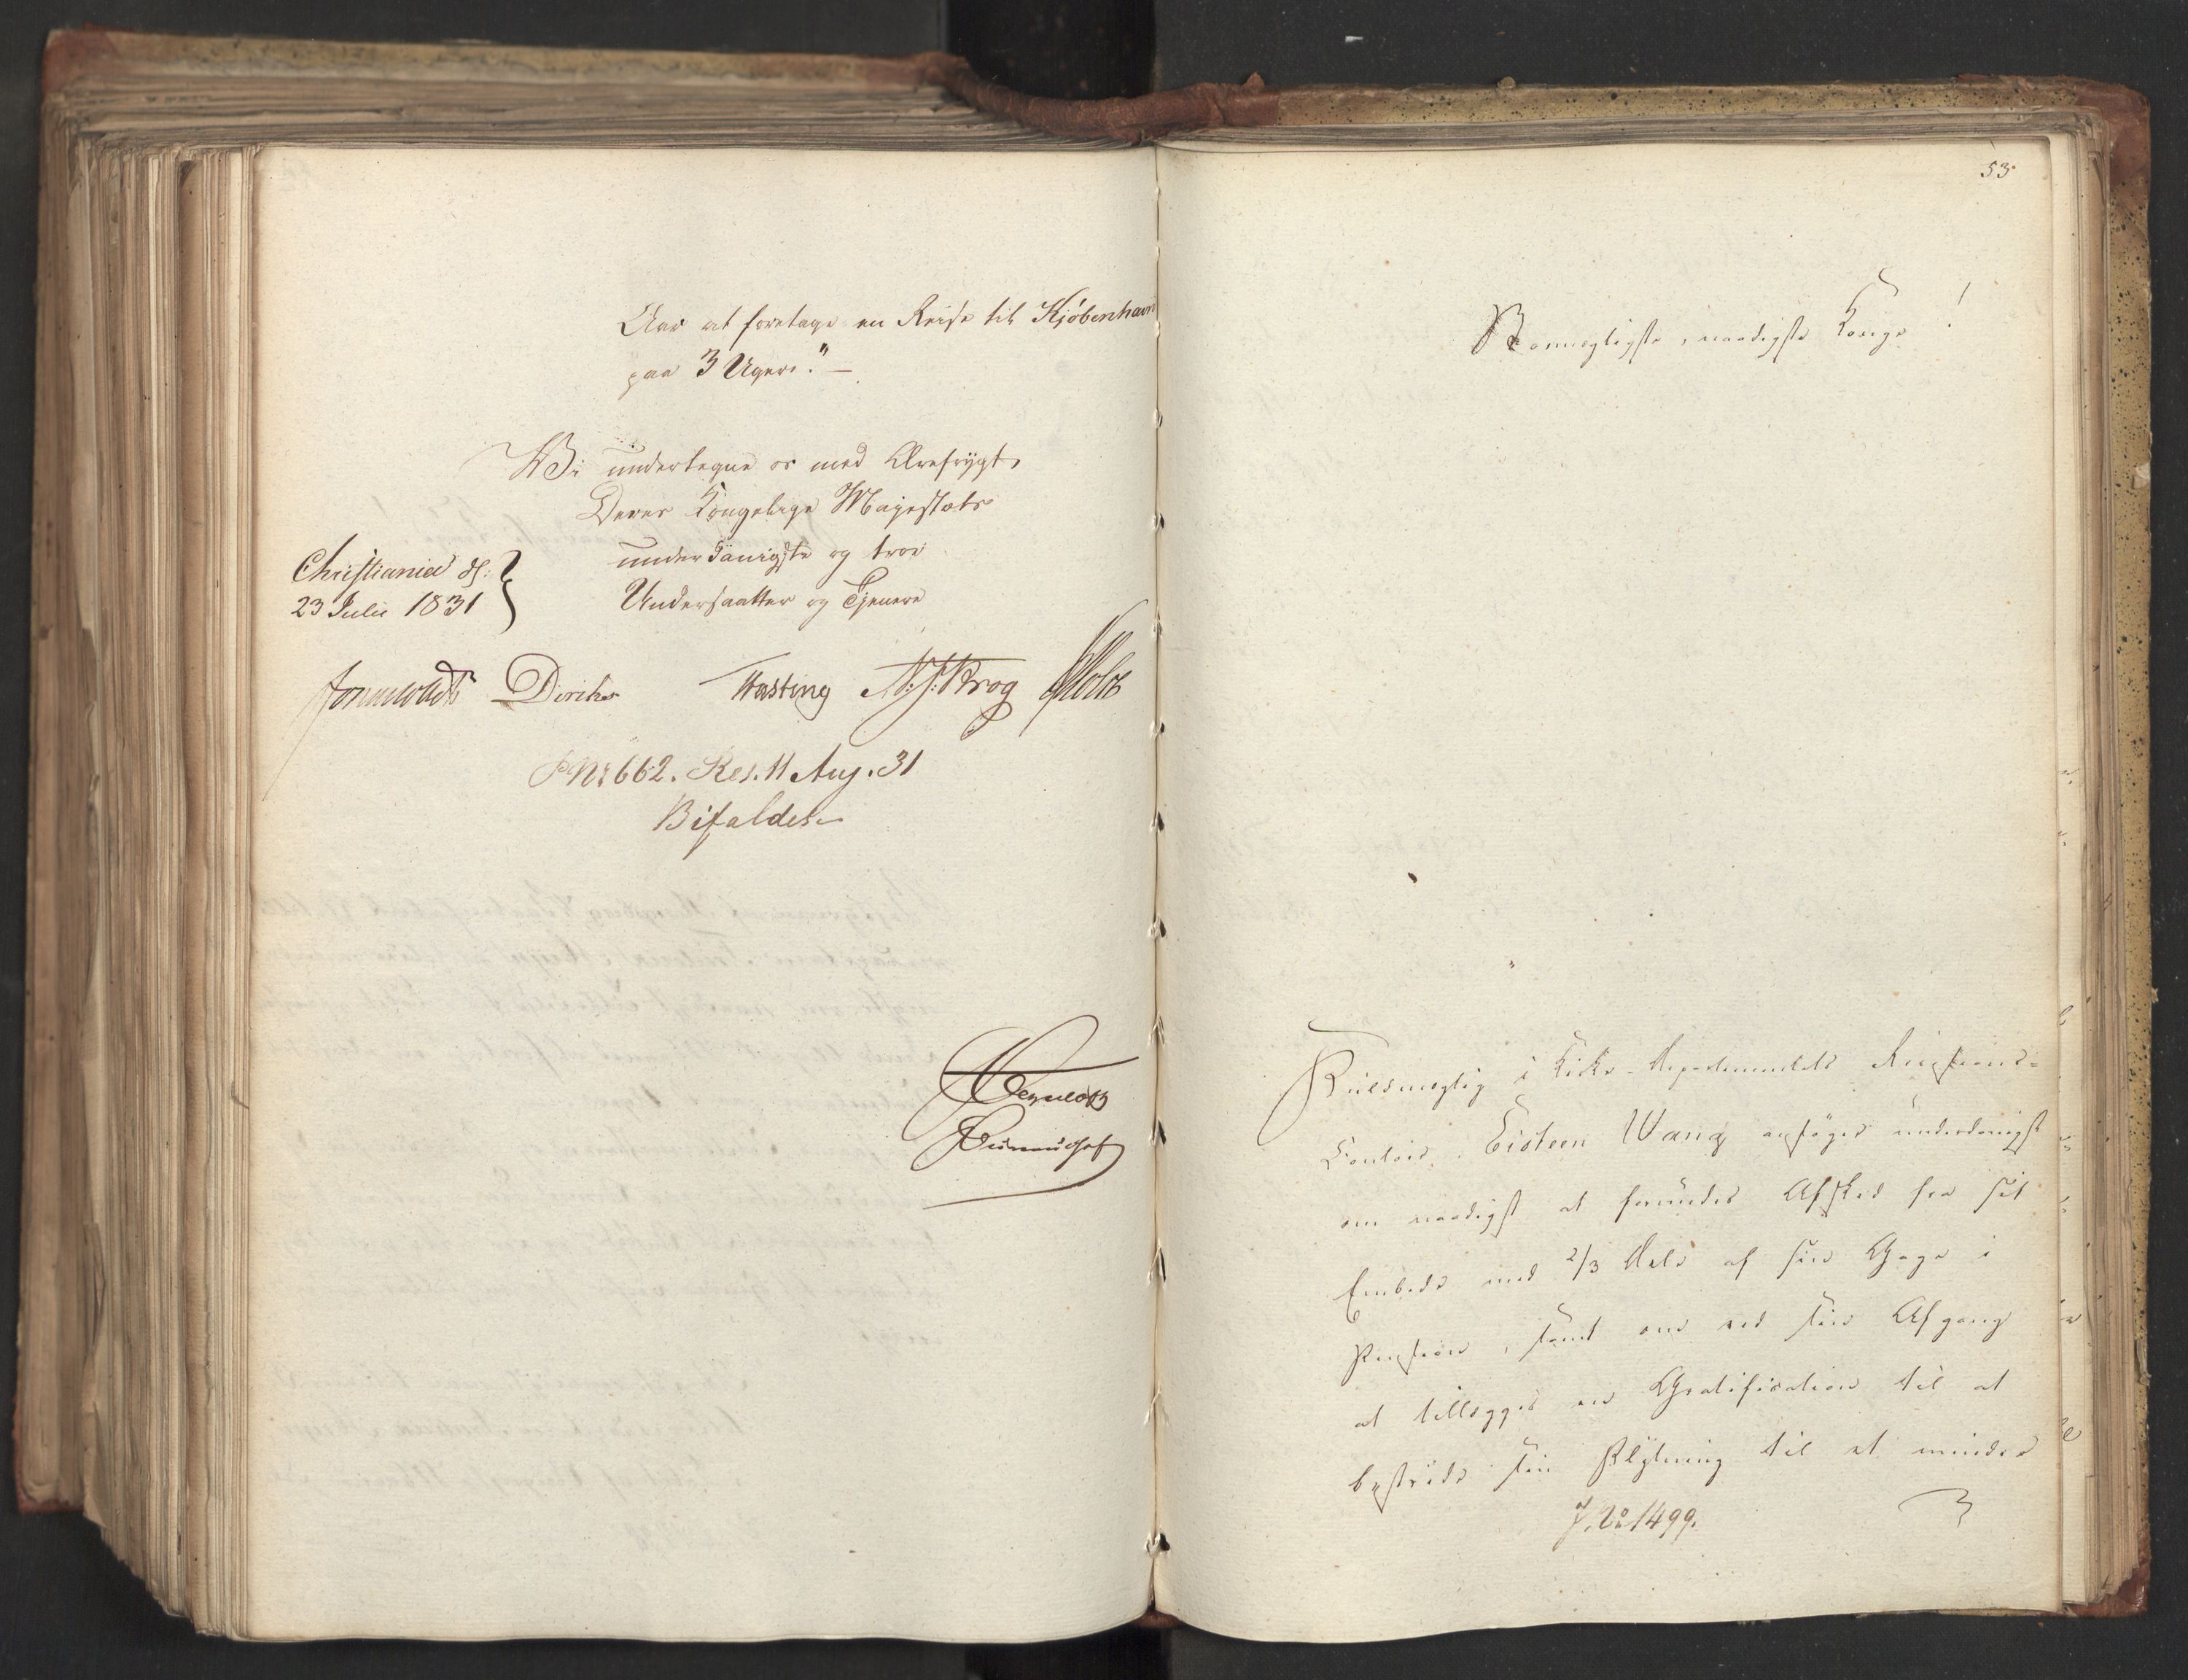 Aar at foretage en Reise til Kjöbenhavn
paa 3 Uger." —
Vi undertegne os med Ærefrygt
Deres Kongelige Majestæts
underdanigste og troe
Undersaatter og Tjenere
Christiania d:
23 Julii 1831
Diriks Fasting N. J. Krog Holst
PNr 662. Res. 11 Aug. 31
Bifaldes
53
Stormægtigste, naadigste Konge!
Fuldmægtig i Kirke-Departementets Revisions-
Contoir, Eisteen Wang ansøger underdanigst
om naadigst at forundes Afsked fra sit
Embede med 2/3 Dele af sin Gage i
Pension, samt om ved sin Afgang
at tillægges en Gratification til at
bestride sin Flytning til et mindre
J. No 1499.